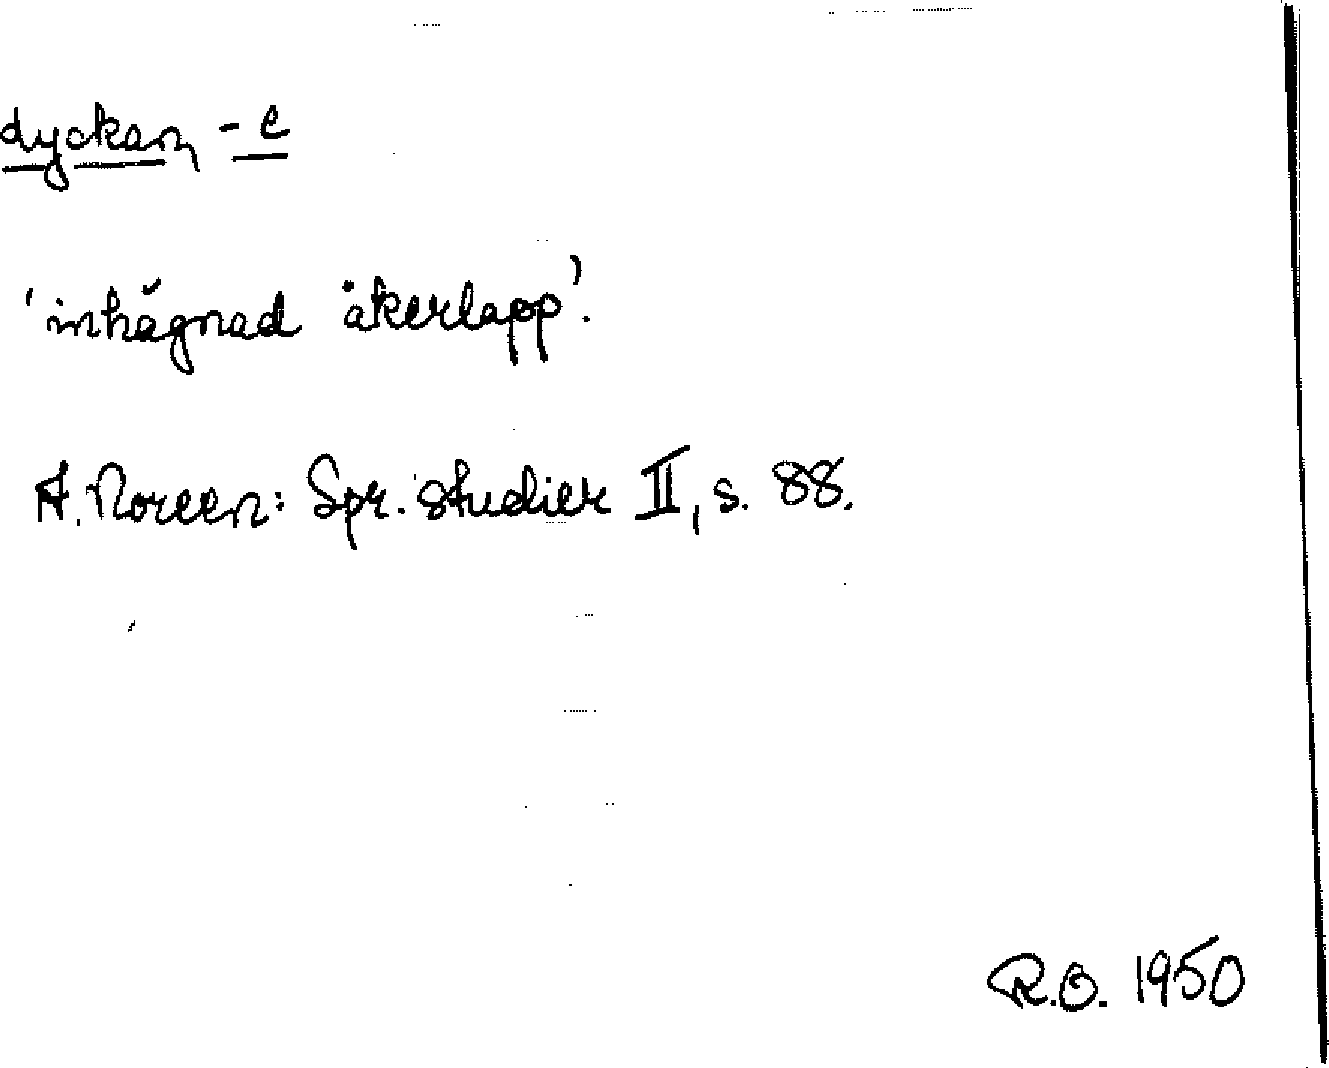 dyckan, -e
'inhägnad åkerlapp'.
A. Noreen: Spr. studier II, s. 88.
R.O. 1950